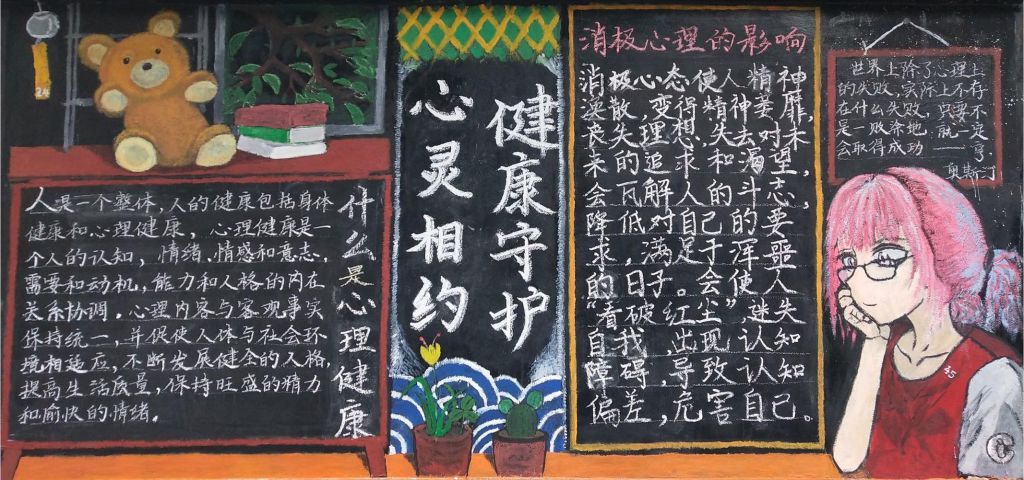 24
人是一个整体,人的健康包括身体
健康和心理健康,心理健康是一
个人的认知,情绪、情感和意志,
需要和动机,能力和人格的内在
关系协调。心理内容与客观事实
保持统一,并促使人体与社会环
境相适应,不断发展健全的人格,
提高生活质量,保持旺盛的精力
和愉快的情绪。
什么是心理健康
心灵相约
健康守护
消极心理的影响
消极心态使人精神
涣散,变得精神萎靡,
丧失理想,失去对未
来的追求和渴望,
会瓦解人的斗志,
降低对自己的要
求,满足于浑噩
的日子。会使人
“看破红尘”迷失
自我,出现认知
障碍,导致认知
偏差,危害自己。
世界上除了心理上
的失败,实际上不存
在什么失败,只要不
是一败涂地,就一定
会取得成功——亨.
奥斯汀
45
C